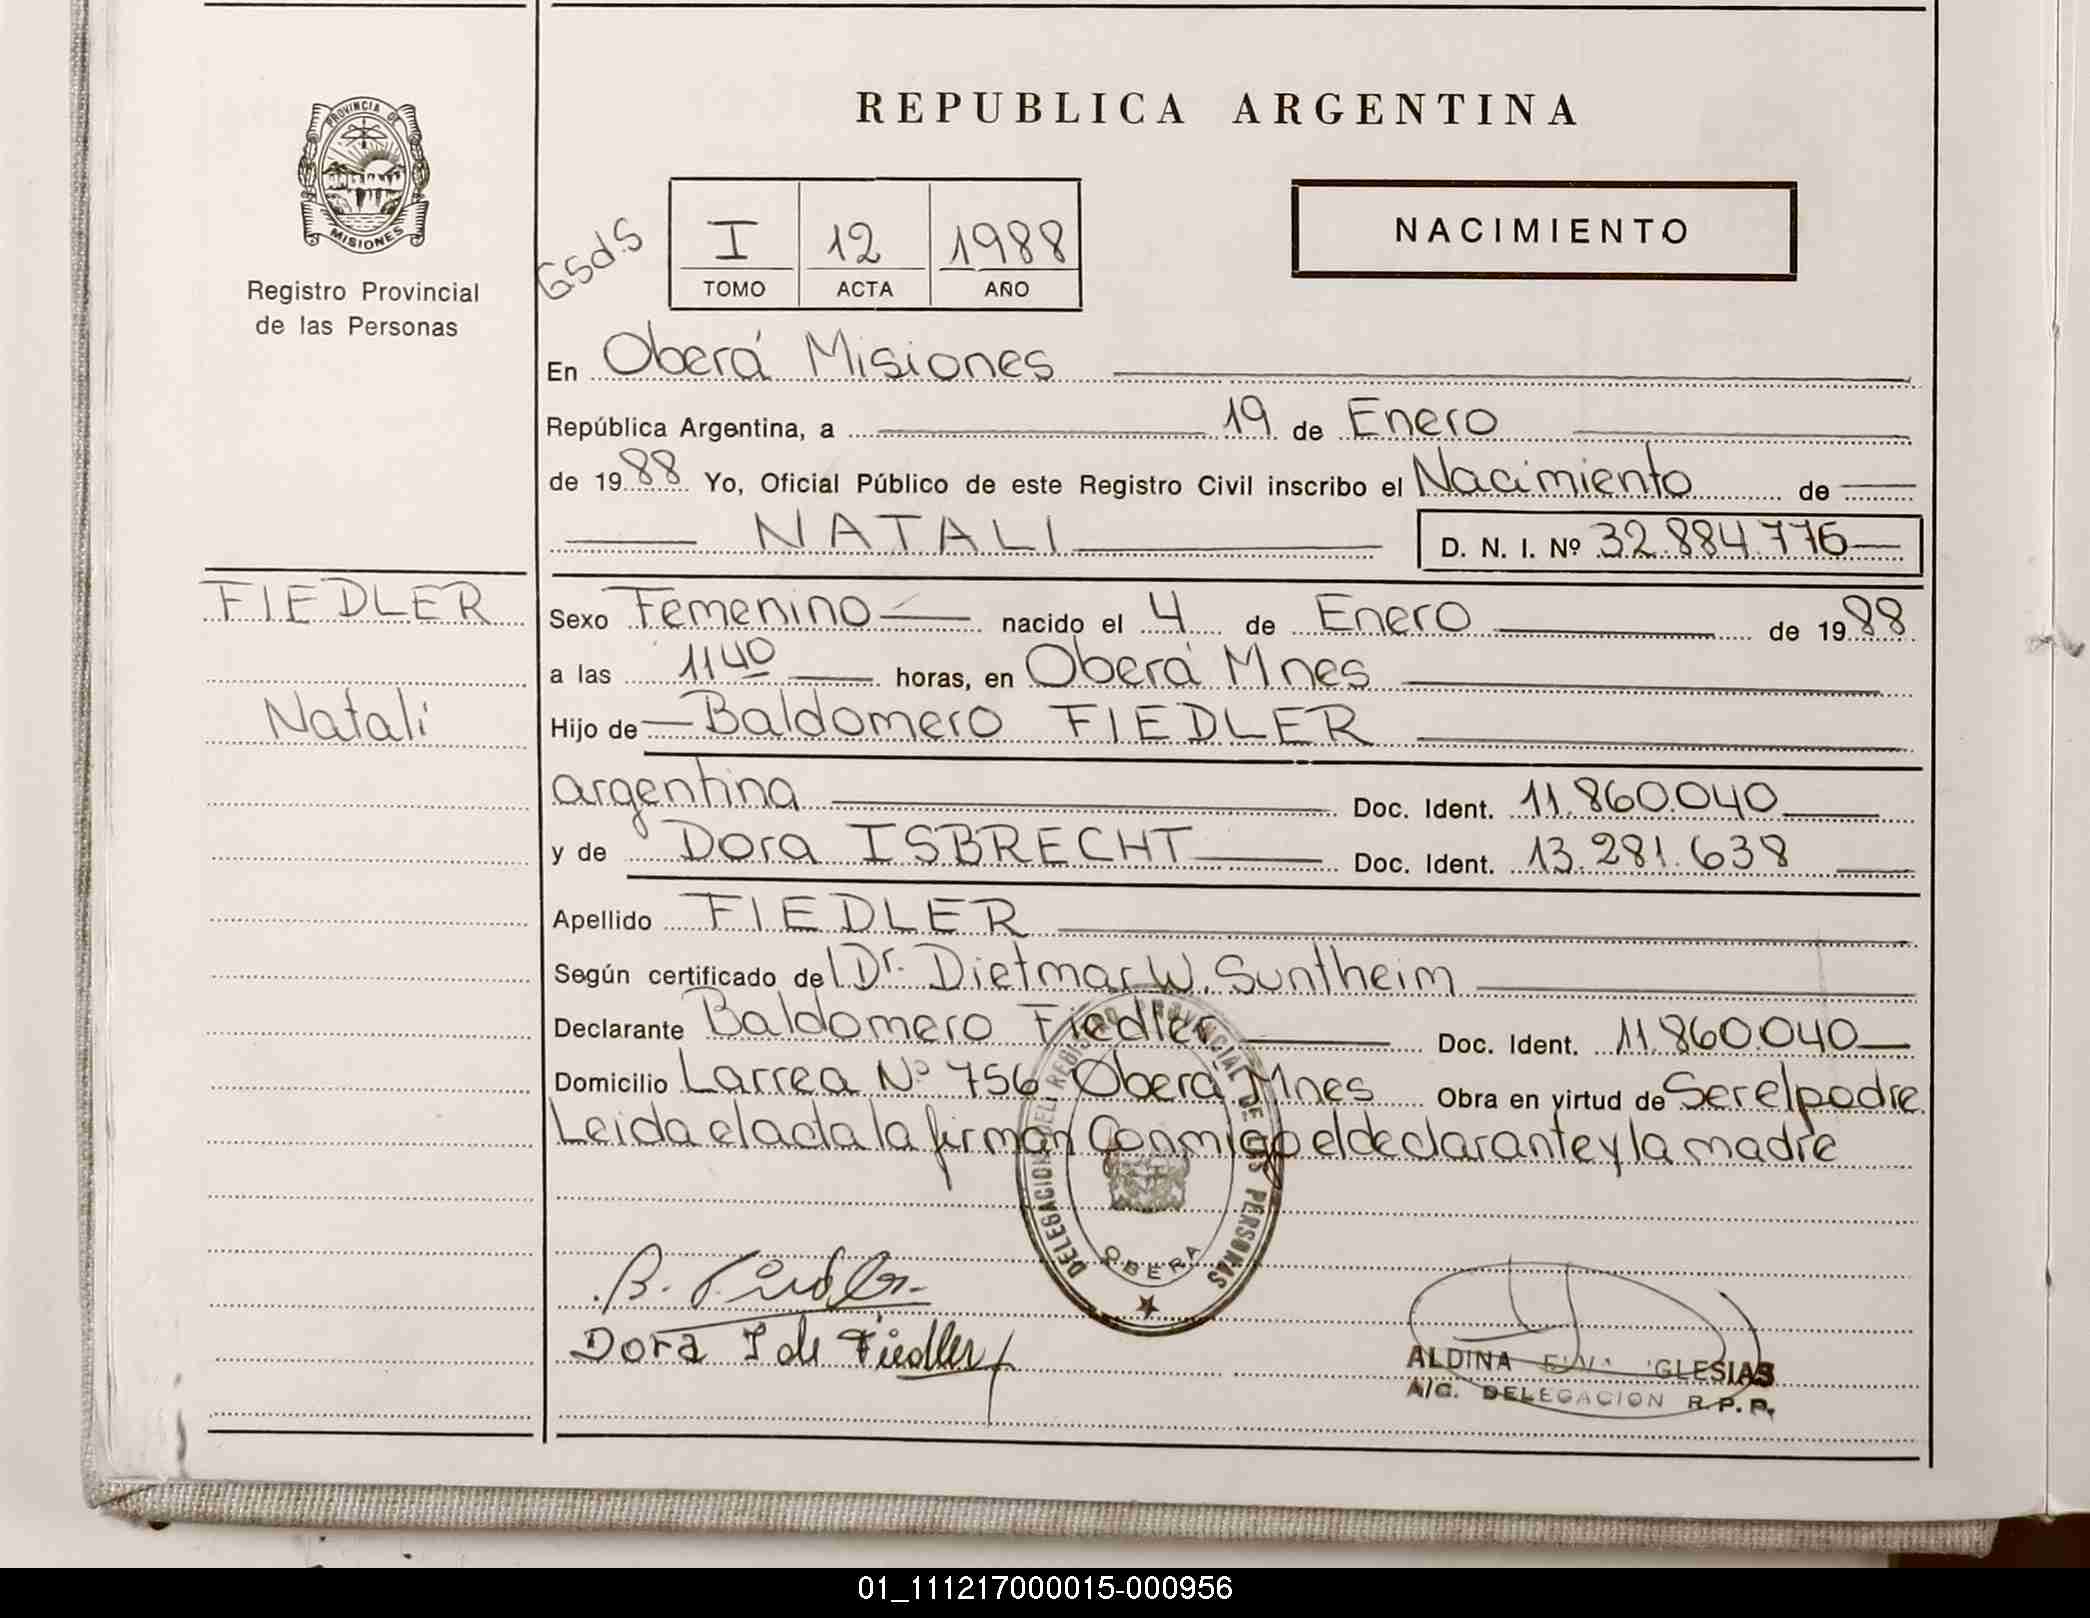 REPUBLICA ARGENTINA
PROVINCIA DE
MISIONES
Registro Provincial
de las Personas
Gsd.S
I 12 1988
TOMO ACTA AÑO
NACIMIENTO
En Oberá Misiones
República Argentina, a 19 de Enero
de 1988 Yo, Oficial Público de este Registro Civil inscribo el Nacimiento de
NATALI D. N. I. Nº 32.884.776
FIEDLER
Natali
Sexo Femenino nacido el 4 de Enero de 1988
a las 1140 horas, en Oberá Mnes
Hijo de Baldomero FIEDLER
argentina Doc. Ident. 11.860.040
y de Dora ISBRECHT Doc. Ident. 13.281.638
Apellido FIEDLER
Según certificado del Dr. Dietmar W. Suntheim
Declarante Baldomero Fiedler Doc. Ident. 11.860.040
Domicilio Larrea Nº 756 Oberá Mnes Obra en virtud de Ser el padre
Leida el acta la firman Conmigo el declarante y la madre
DELEGACION DEL REGISTRO PROVINCIAL DE LAS PERSONAS
OBERA
B. Fiedler
Dora I de Fiedler
ALDINA IGLESIAS
A/C. DELEGACION R.P.P.
01_111217000015-000956